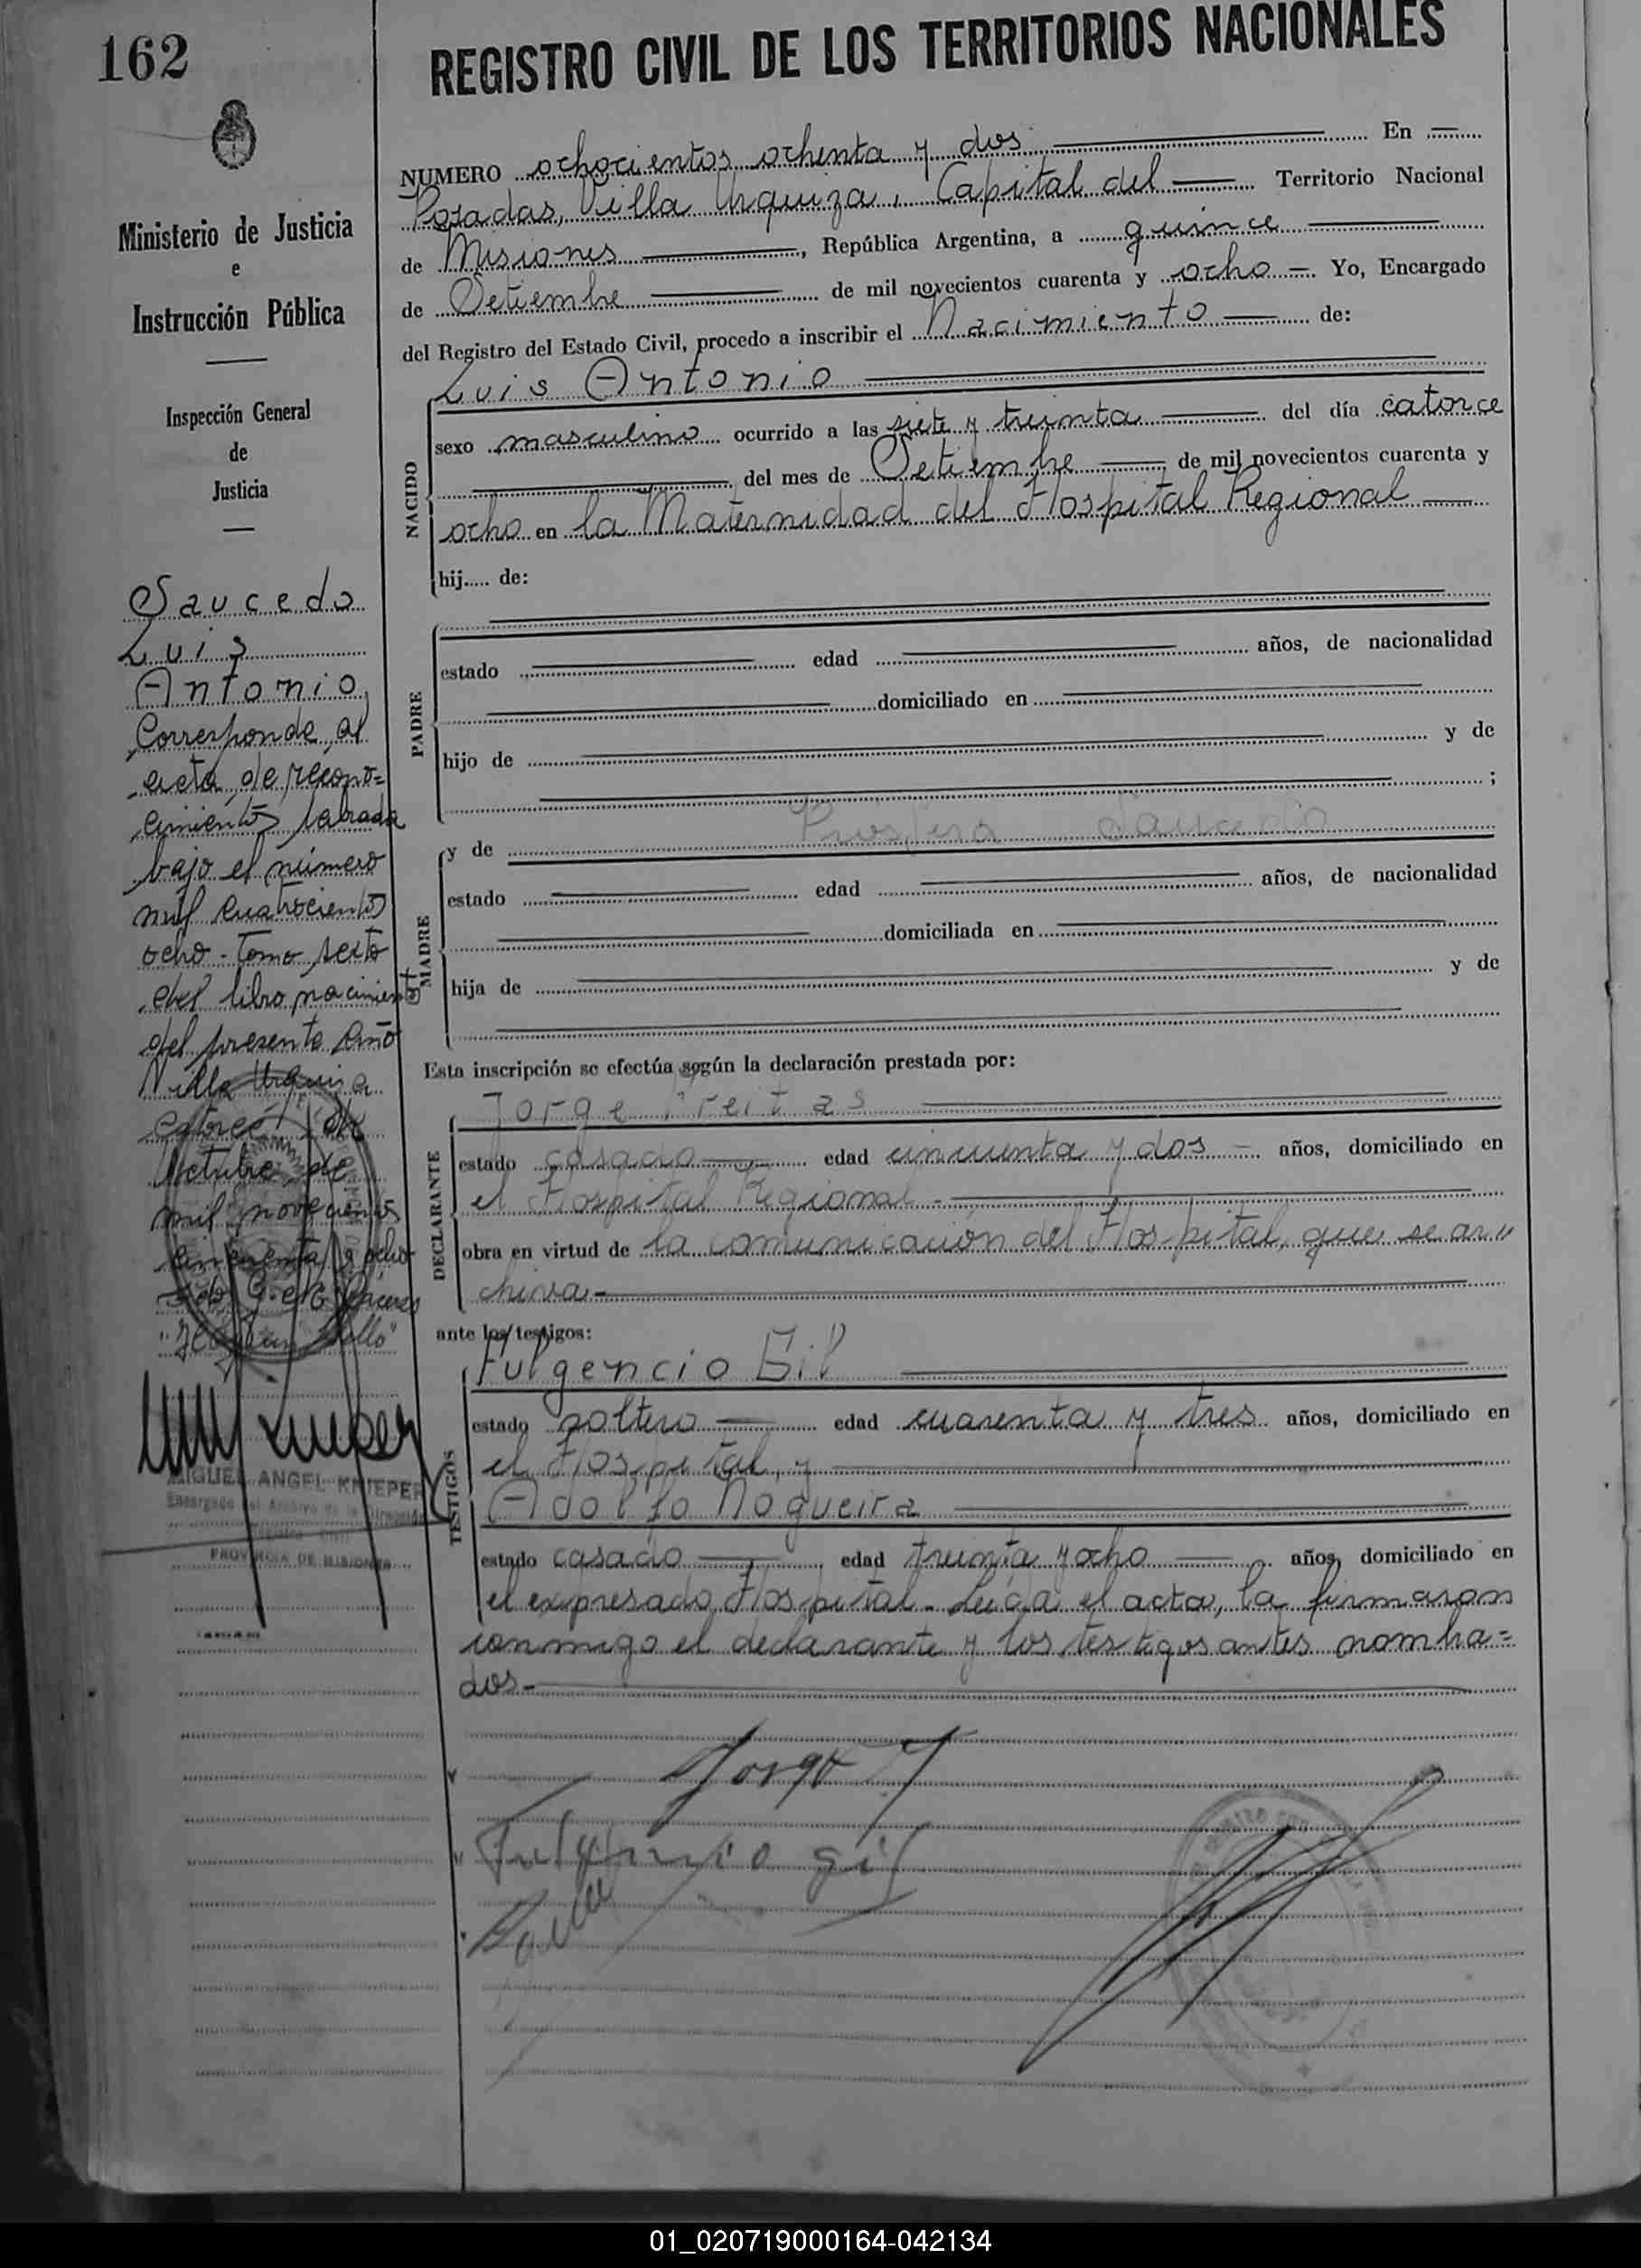 162
REGISTRO CIVIL DE LOS TERRITORIOS NACIONALES
Ministerio de Justicia
e
Instrucción Pública
Inspección General
de
Justicia
Saucedo
Luis
Antonio
Corresponde al
acta de recono=
cimiento labrada
bajo el número
mil cuatrocientos
ocho - Tomo sexto
del libro nacimien
del presente año
Villa Urquiza
Catorce de
Octubre de
mil novecientos
cincuenta y ocho
MIGUEL ANGEL KNIEPER
PROVINCIA DE MISIONES
NUMERO ochocientos ochenta y dos En
Posadas, Villa Urquiza, Capital del Territorio Nacional
de Misiones, República Argentina, a quince
de Setiembre de mil novecientos cuarenta y ocho - Yo, Encargado
del Registro del Estado Civil, procedo a inscribir el Nacimiento de:
NACIDO
Luis Antonio
sexo masculino ocurrido a las siete y treinta del día catorce
del mes de Setiembre de mil novecientos cuarenta y
ocho en la Maternidad del Hospital Regional
hij..... de:
PADRE
estado edad años, de nacionalidad
domiciliado en
hijo de y de
;
MADRE
y de Saucedo
estado edad años, de nacionalidad
domiciliada en
hija de y de
Esta inscripción se efectúa según la declaración prestada por:
DECLARANTE
Jorge Freitas
estado casado edad cincuenta y dos - años, domiciliado en
el Hospital Regional -
obra en virtud de la comunicación del Hospital, que se ar"
chiva -
ante los testigos:
TESTIGOS
Fulgencio Gil
estado soltero edad cuarenta y tres años, domiciliado en
el Hospital, y
Adolfo Nogueira
estado casado edad treinta y ocho años, domiciliado en
el expresado Hospital - Leída el acta, la firmaron
conmigo el declarante y los testigos antes nombra=
dos -
Jorge
Fulgencio Gil
01_020719000164-042134